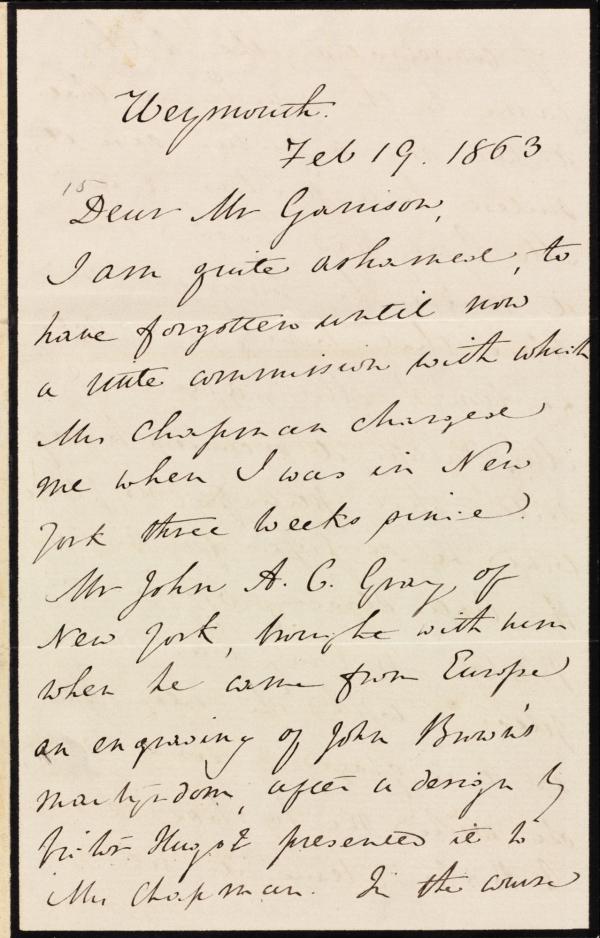 Weymouth.
Feb 19. 1863
15
Dear Mr Garrison,
I am quite ashamed, to
have forgotten until now
a little commission with which
Mrs Chapman charged
me when I was in New
York three weeks since.
Mr John A. C. Gray, of
New York, brought with him
when he came from Europe
an engraving of John Brown's
martyrdom, after a design by
Victor Hugo & presented it to
Mrs Chapman. In the course